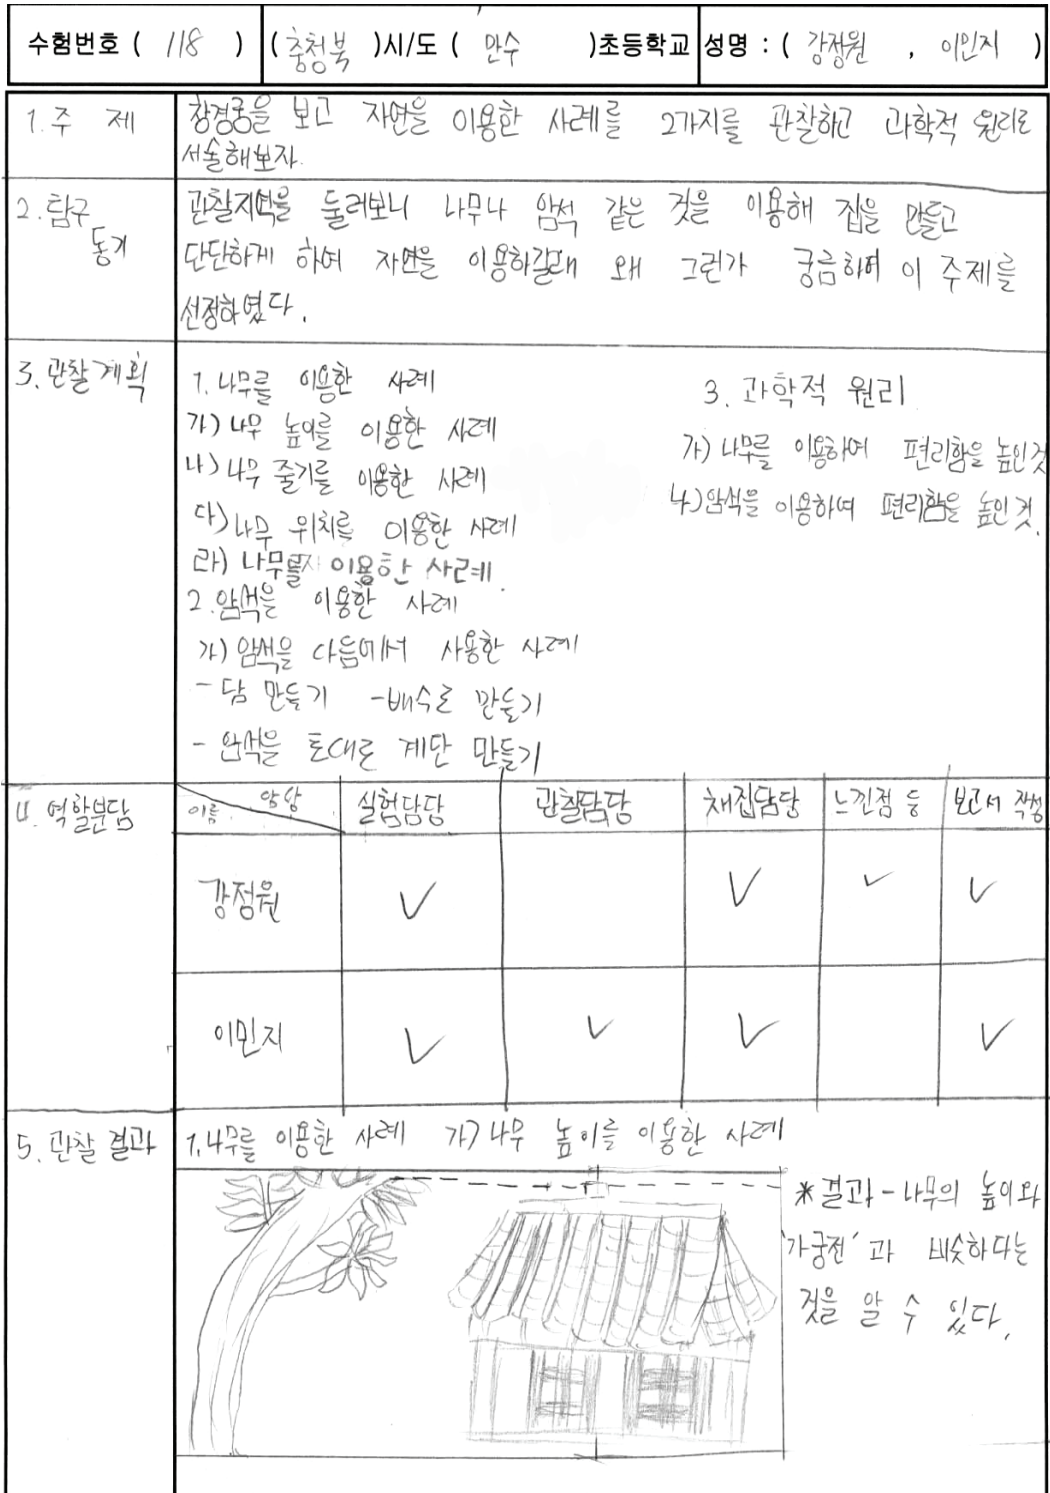 수험번호 ( 118 ) ( 충청북 )시/도 ( 만수 )초등학교 성명 : ( 강정원 , 이민지 )
1. 주 제
창경궁을 보고 자연을 이용한 사례를 2가지를 관찰하고 과학적 원리로
서술해보자.
2. 탐구
동기
관찰지역을 둘러보니 나무나 암석 같은 것을 이용해 집을 만들고
단단하게 하여 자연을 이용하길래 왜 그런가 궁금하여 이 주제를
선정하였다.
3. 관찰계획
1. 나무를 이용한 사례
가) 나무 높이를 이용한 사례
나) 나무 줄기를 이용한 사례
다) 나무 위치를 이용한 사례
라) 나무를 이용한 사례.
2. 암석을 이용한 사례
가) 암석을 다음에서 사용한 사례
- 담 만들기 - 배수로 만들기
- 암석을 토대로 계단 만들기
3. 과학적 원리
가) 나무를 이용하여 편리함을 높인것
나) 암석을 이용하여 편리함을 높인 것.
4. 역할분담
이름 실험담당 관찰담당 채집담당 느낀점 등 보고서 작성
강정원 ✓ ✓ ✓ ✓
이민지 ✓ ✓ ✓ ✓
5. 관찰 결과
1. 나무를 이용한 사례 가) 나무 높이를 이용한 사례
* 결과 - 나무의 높이와
'가궁전' 과 비슷하다는
것을 알 수 있다.